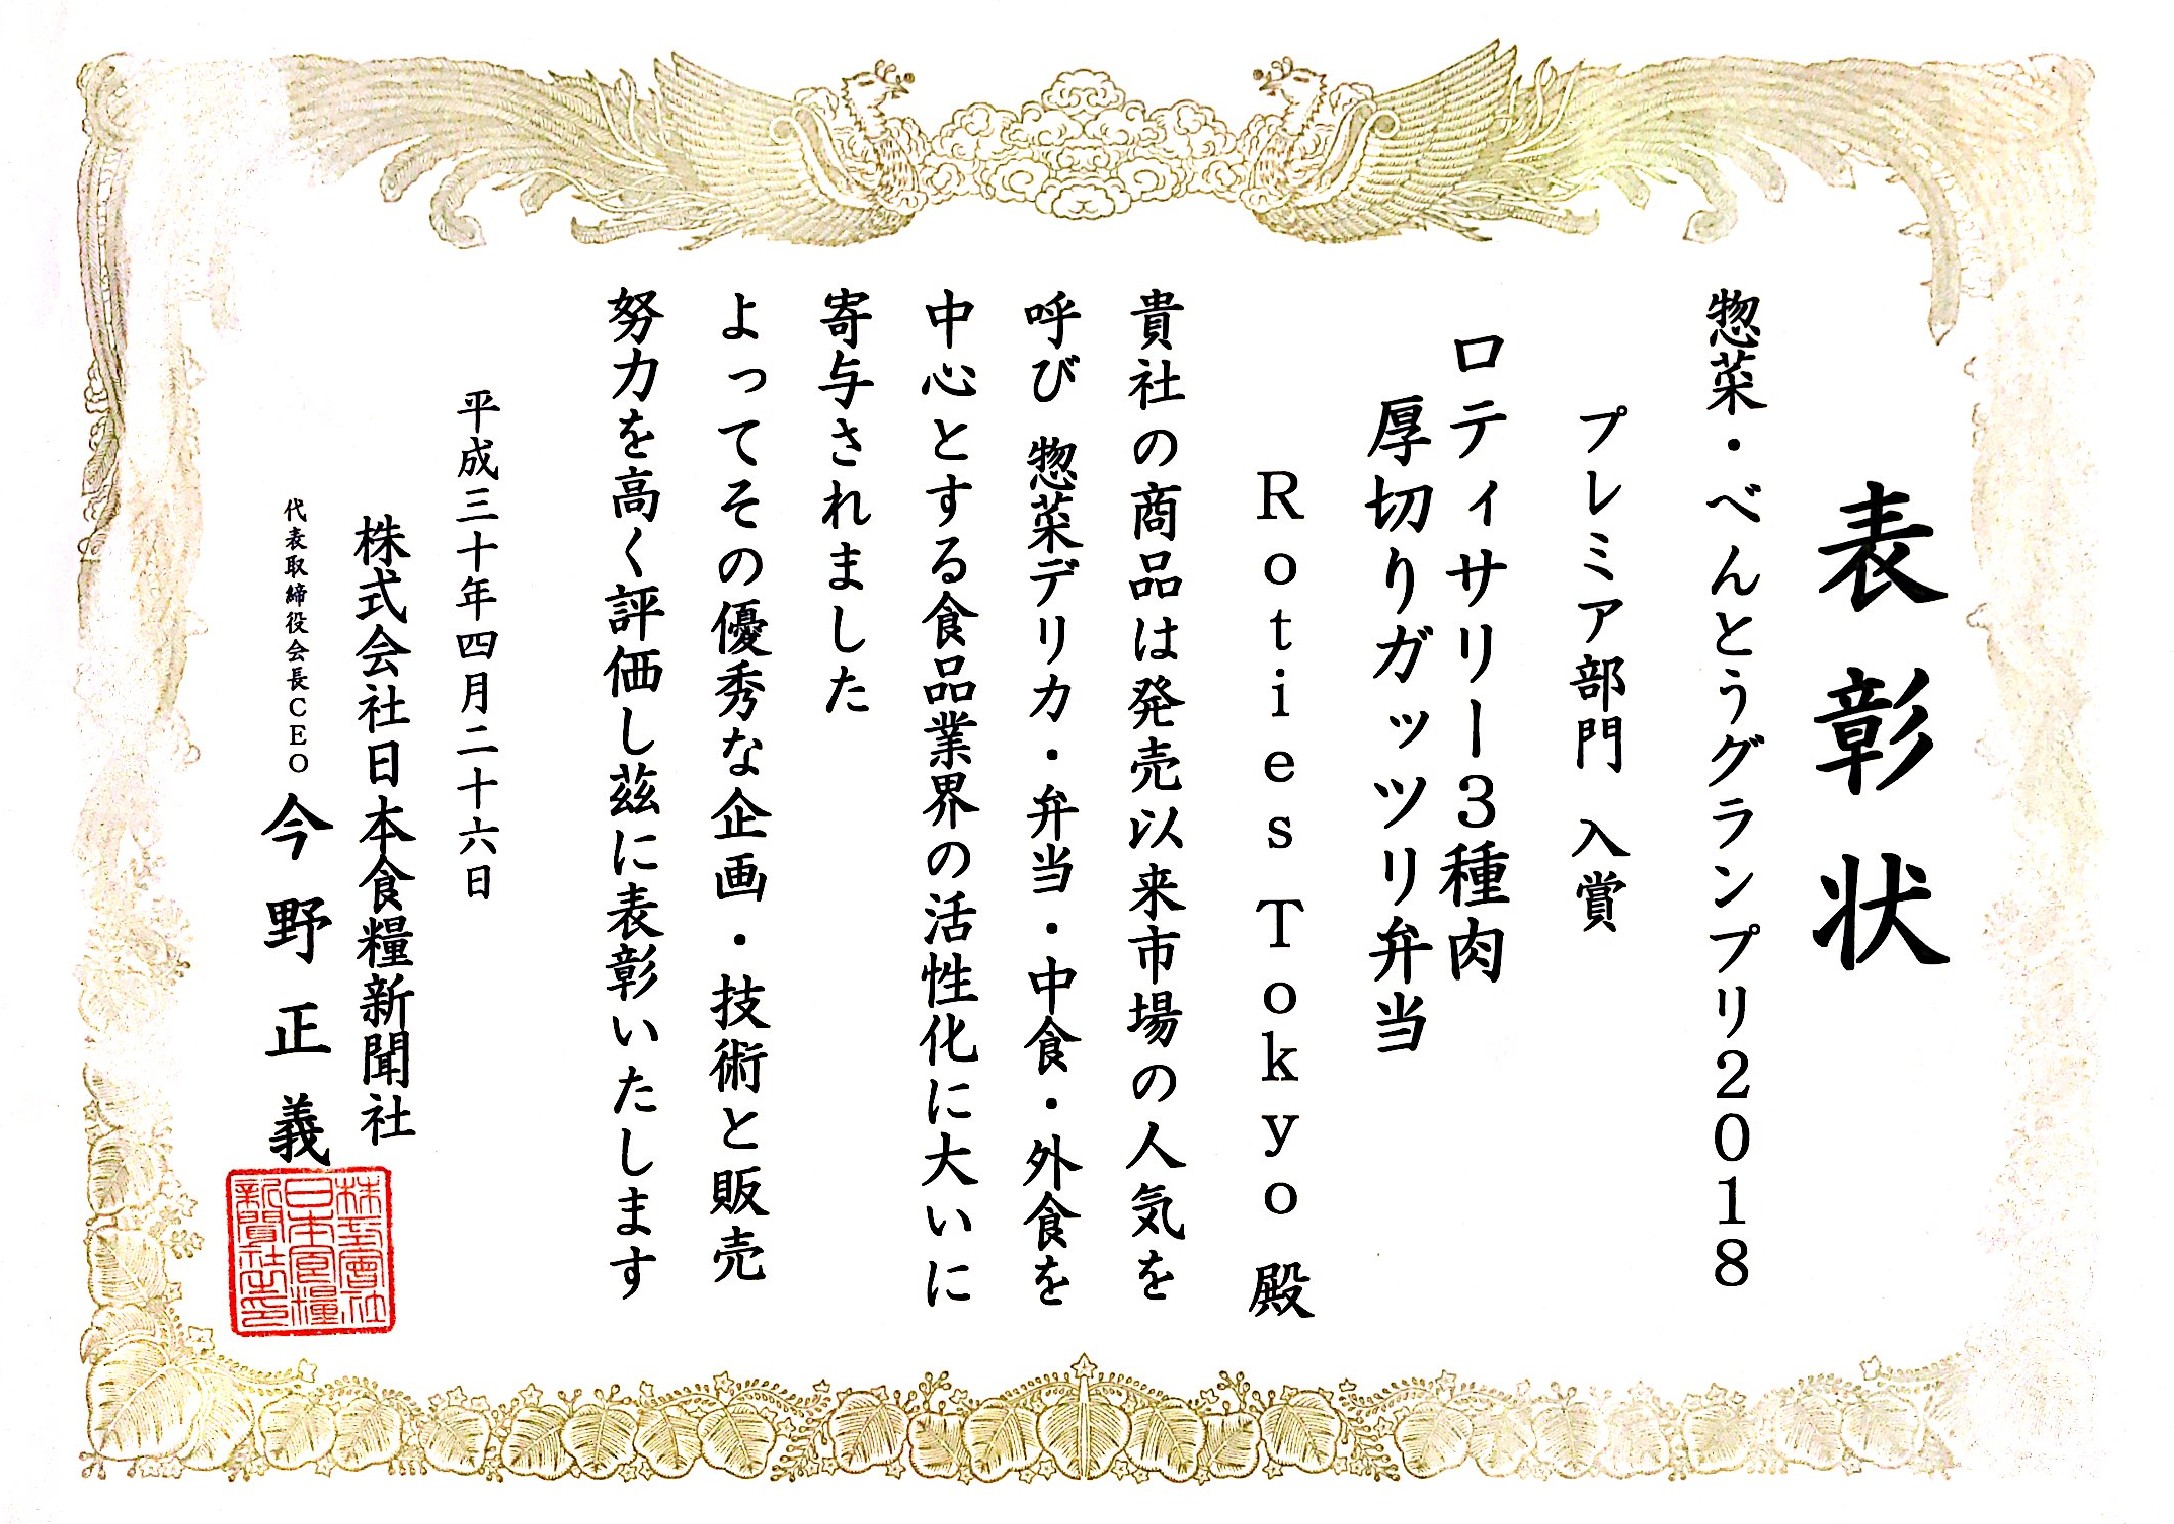 表彰状
惣菜・べんとうグランプリ2018
プレミア部門 入賞
ロティサリー3種肉
厚切りガッツリ弁当
Roties Tokyo 殿
貴社の商品は発売以来市場の人気を
呼び 惣菜デリカ・弁当・中食・外食を
中心とする食品業界の活性化に大いに
寄与されました
よってその優秀な企画・技術と販売
努力を高く評価し茲に表彰いたします
平成三十年四月二十六日
株式会社日本食糧新聞社
代表取締役会長CEO 今野正義
株式會社
日本食糧
新聞社之印